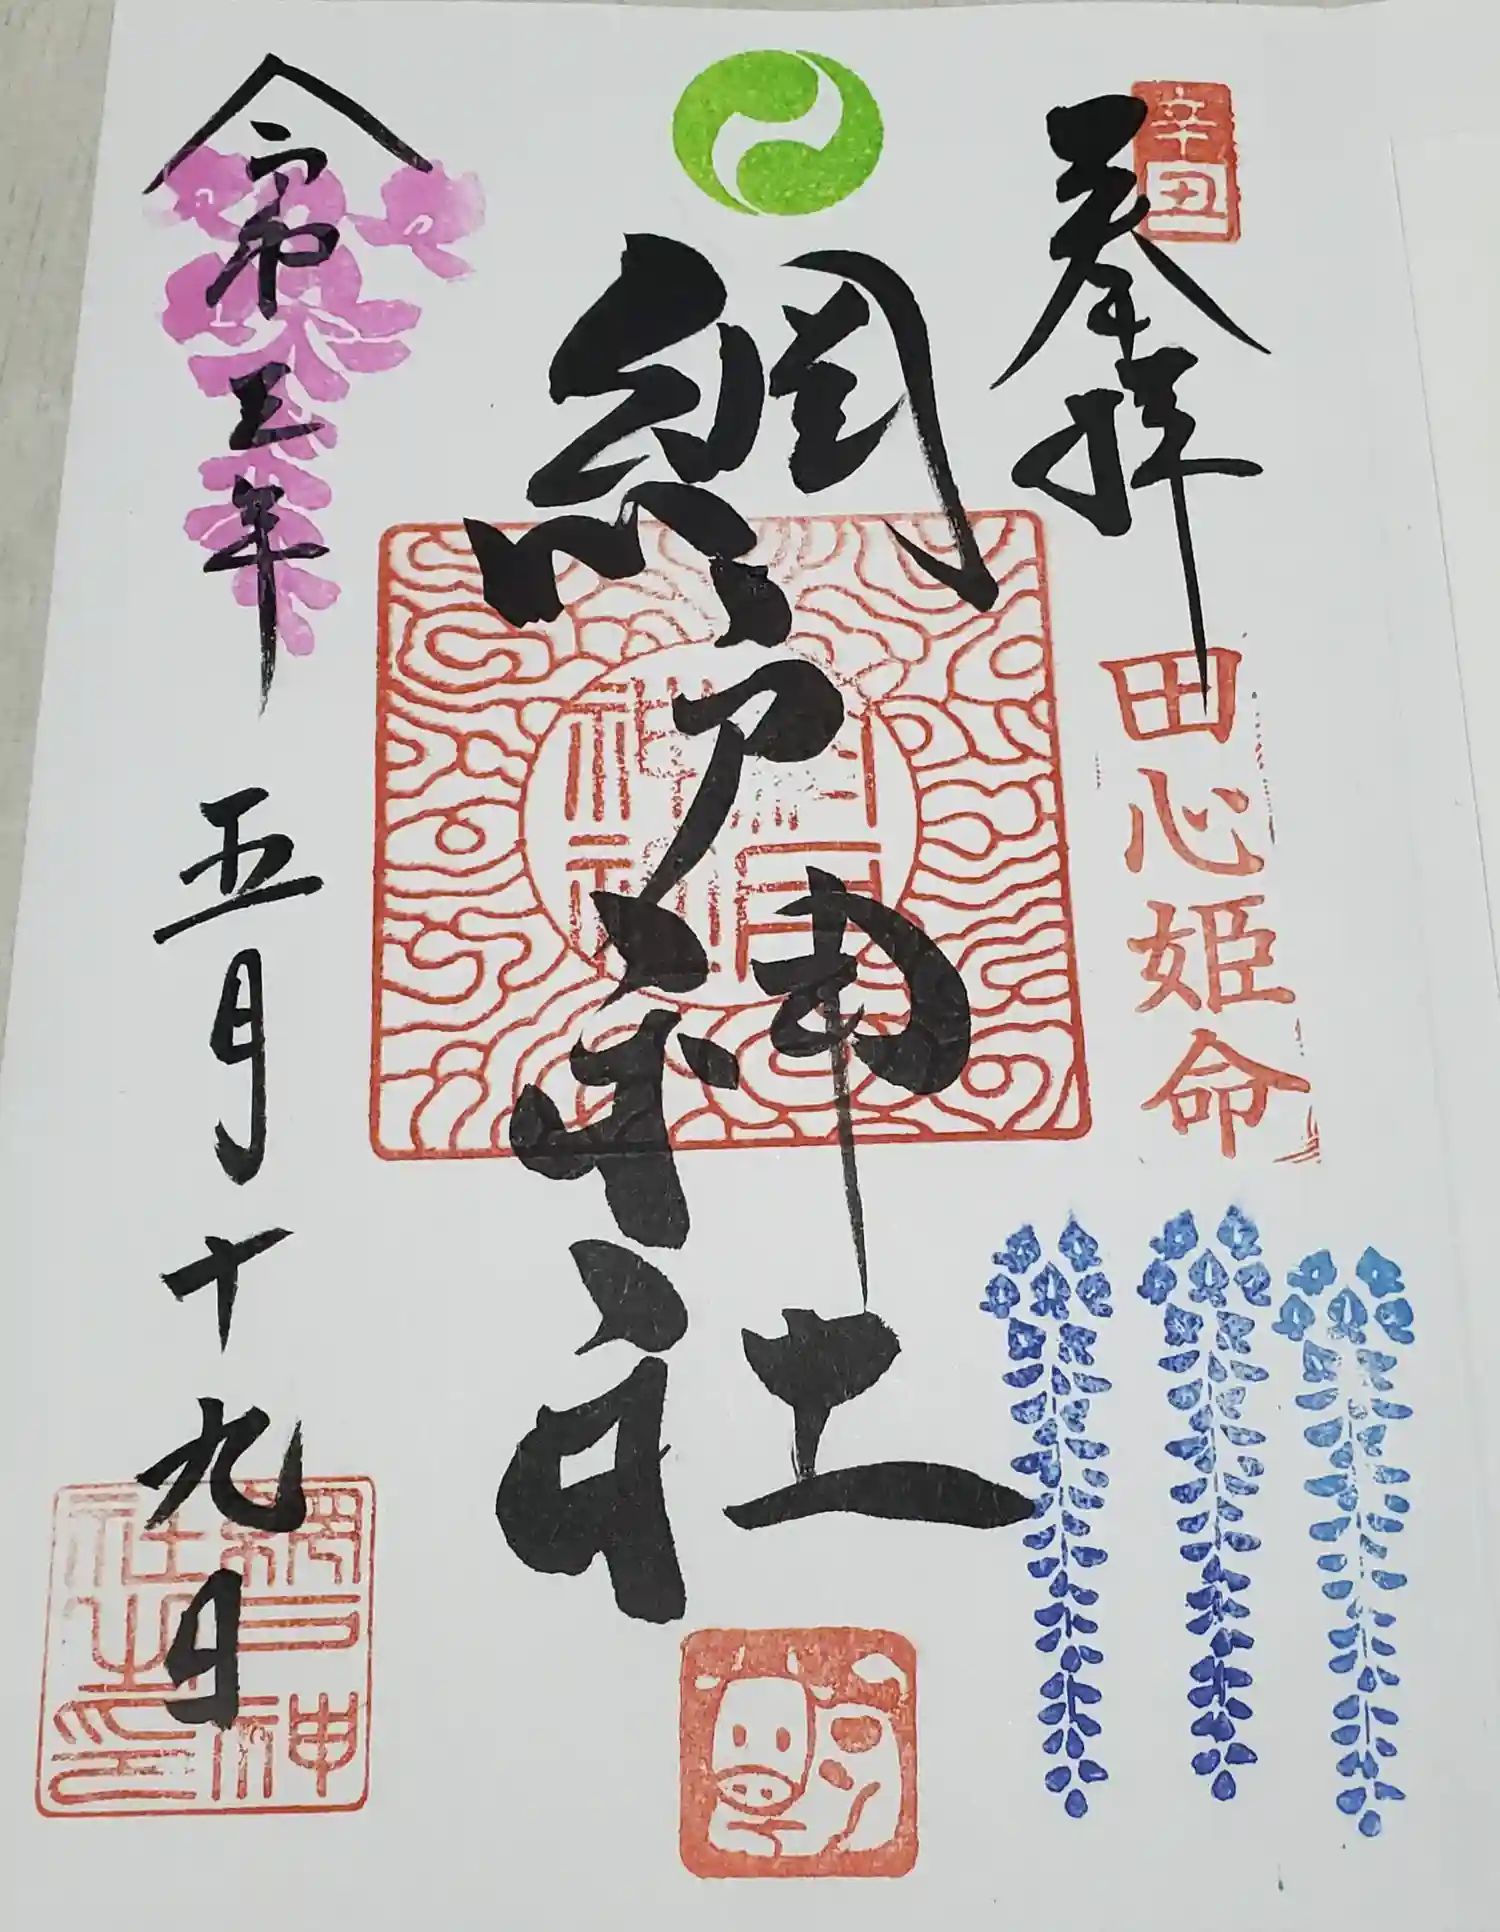 辛丑
奉拝
田心姫命
網戸神社
令和三年五月十九日
網戸神社之印